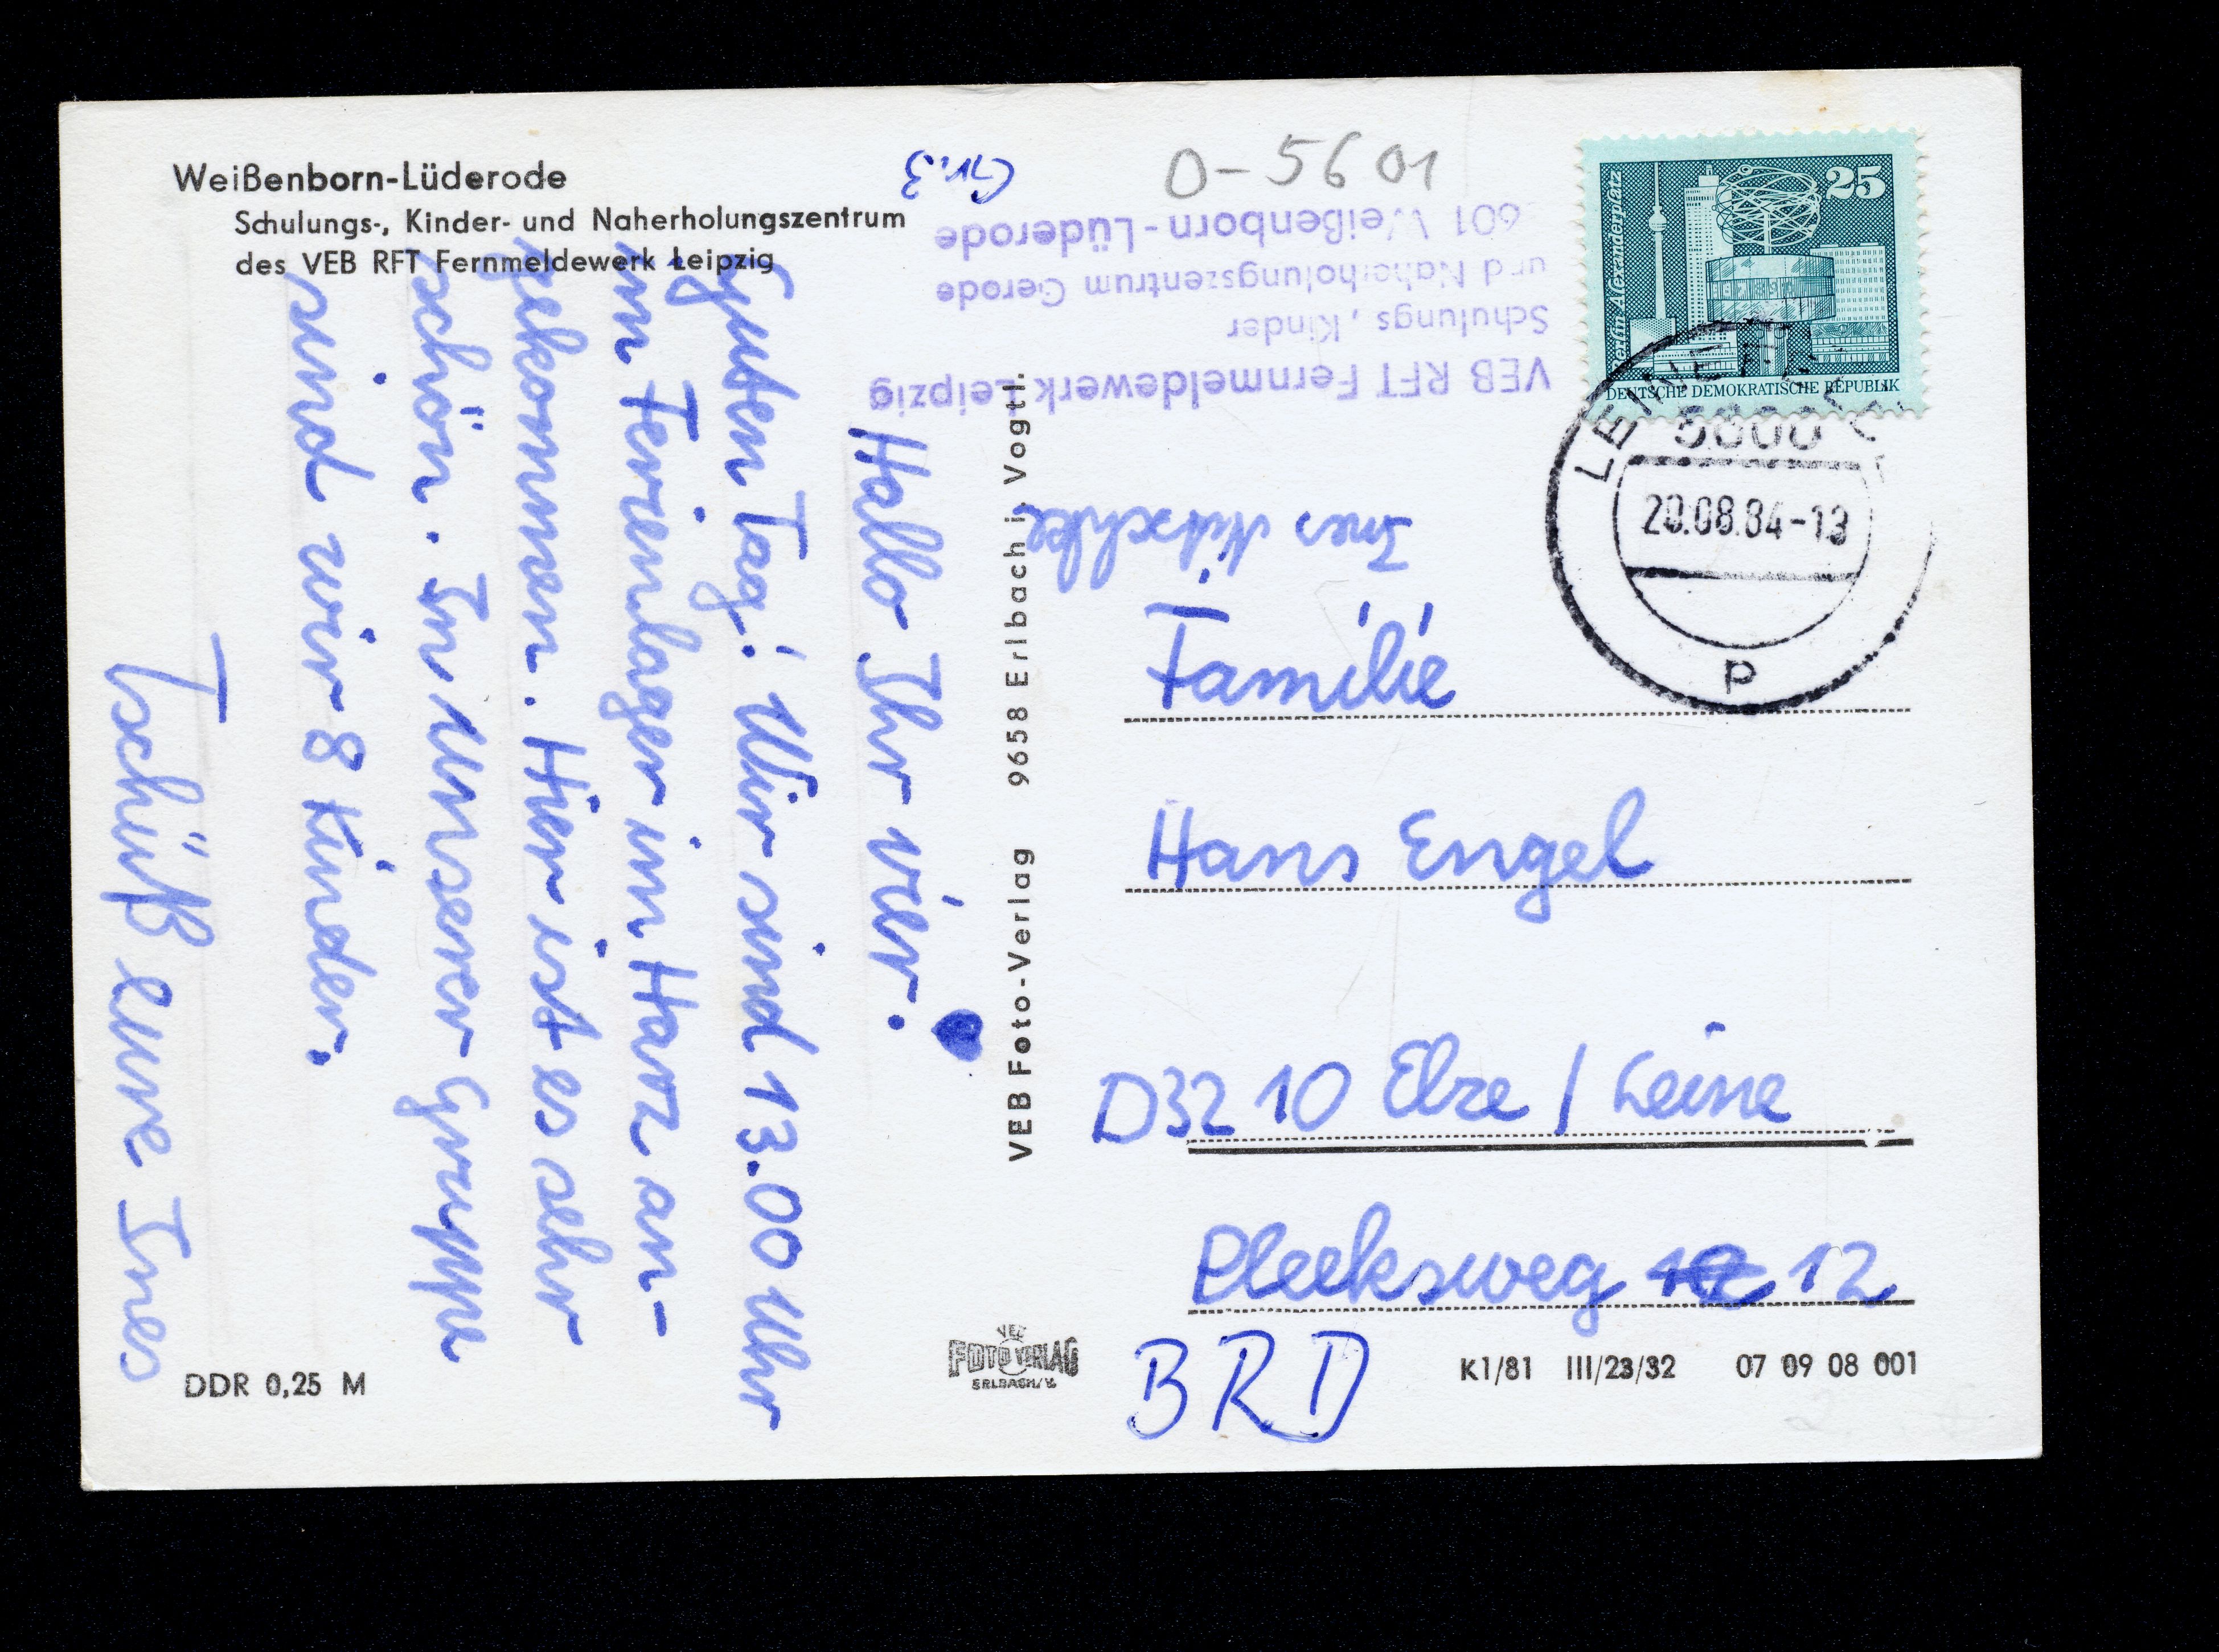 Weißenborn-Lüderode
Schulungs-, Kinder- und Naherholungszentrum
des VEB RFT Fernmeldewerk Leipzig
Hallo Ihr vier.
Guten Tag! Wir sind 13.00 Uhr
im Ferienlager im Harz an-
gekommen. Hier ist es sehr
schön. In unserer Gruppe
sind wir 8 Kinder.
Tschüß eure Ines
DDR 0,25 M
VEB Foto-Verlag 9658 Erlbach i. Vogtl.
FOTO VERLAG
ERLBACH/V.
Gr. 3
O-5601
VEB RFT Fernmeldewerk Leipzig
Schulungs, Kinder
und Naherholungszentrum Gerode
601 Weißenborn-Lüderode
Ines
25
Berlin Alexanderplatz
DEUTSCHE DEMOKRATISCHE REPUBLIK
5600
20.08.84-13
p
Familie
Hans Engel
D3210 Elze / Leine
12
BRD
K1/81 III/23/32 07 09 08 001